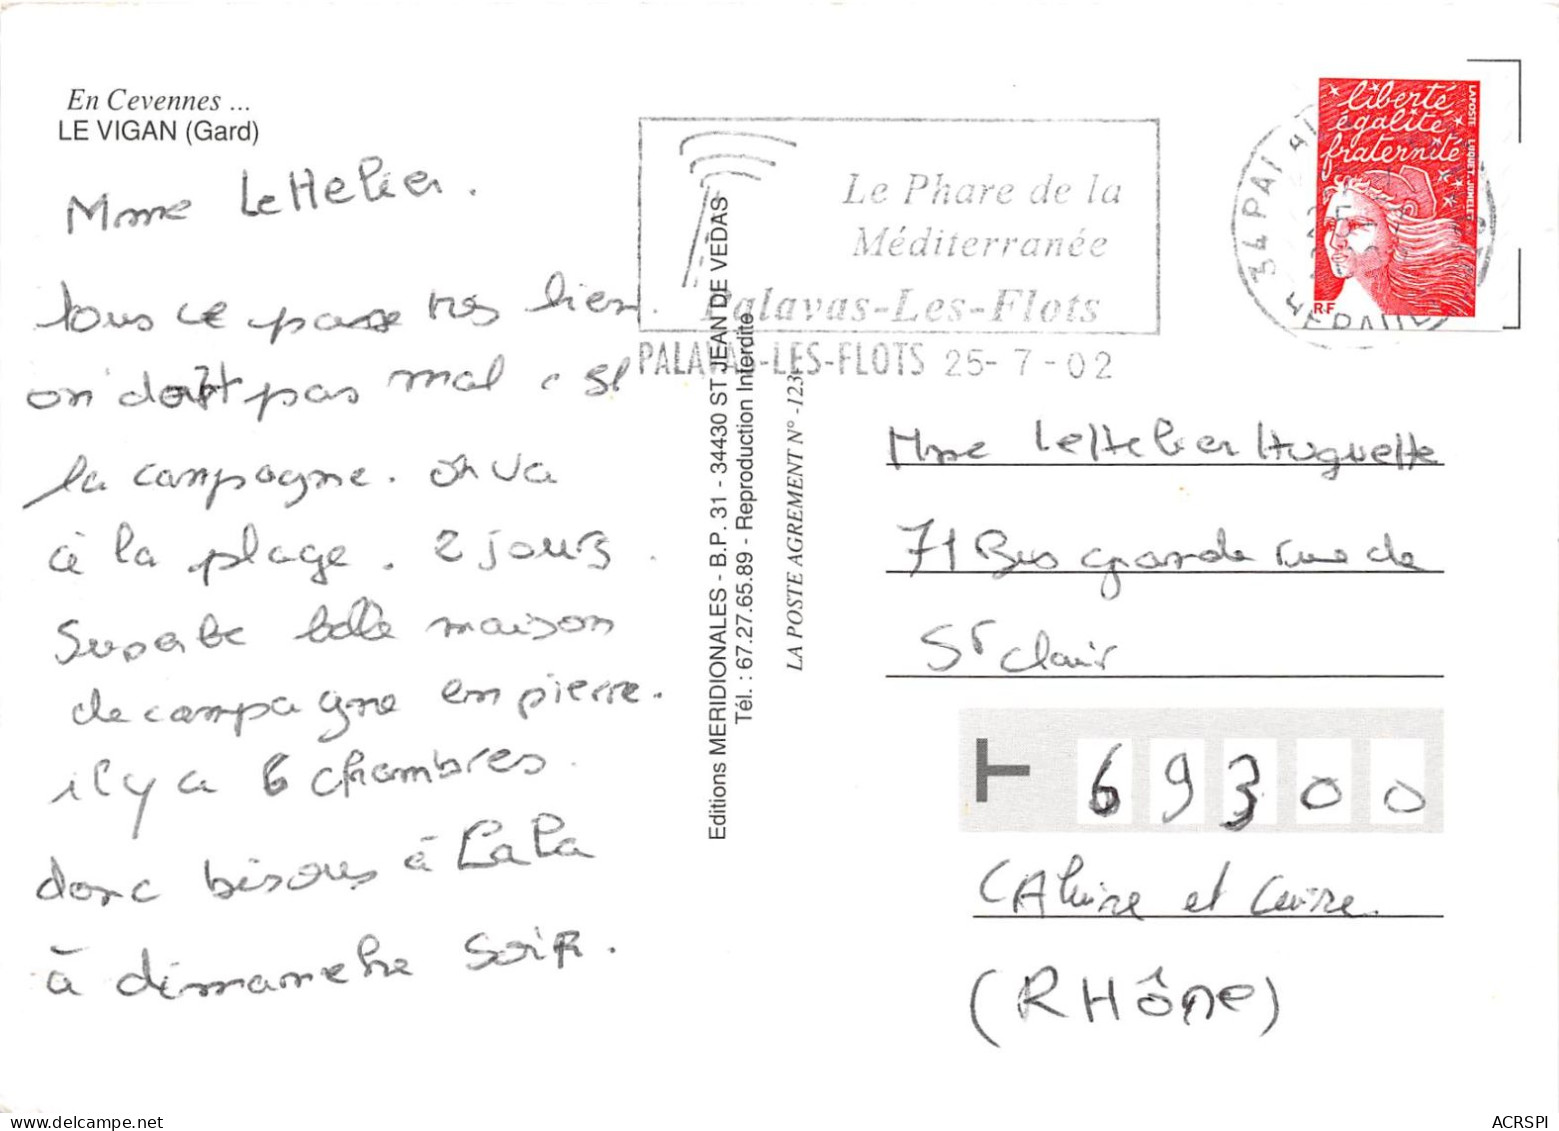 En Cevennes ...
LE VIGAN (Gard)
Mme LeHelier.
tous ce passe tres bien.
on dort pas mal c si
la campagne. on va
à la plage. 2 jours.
Superbe belle maison
de campagne en pierre.
il y a 6 chambres.
donc bisous à LaLa
à dimanche soir.
Editions MERIDIONALES - B.P. 31 - 34430 ST JEAN DE VEDAS
Tél. : 67.27.65.89 - Reproduction Interdite
LA POSTE AGREMENT N° -123
Le Phare de la
Méditerranée
Palavas-Les-Flots
PALAVAS-LES-FLOTS 25-7-02
liberté
égalité
fraternité
LA POSTE LUQUET-JUMELET
RF
Mme LeHelier Huguette
71 Bis grande rue de
St Clair
69300
CAluire et Cuire.
(RHône)
ACRSPI